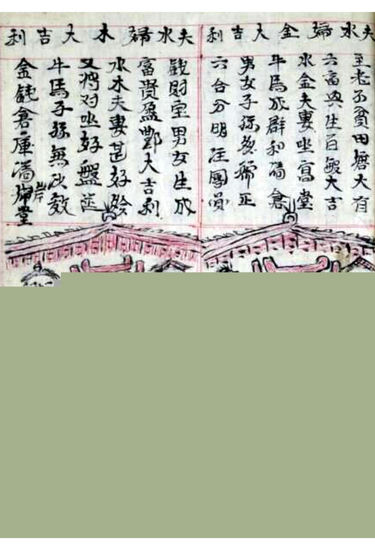 夫水婦金大吉利
至老不貧田大有
六畜興生百般大吉
水金夫妻坐富堂
牛馬成群和滿倉
男女子孫正
六合分明注
夫水婦木大吉利
財宝男女生成
富貴盈豐大吉利
水木夫妻甚好
又对坐好盤
牛馬子孫無次数
金銭倉庫滿堂